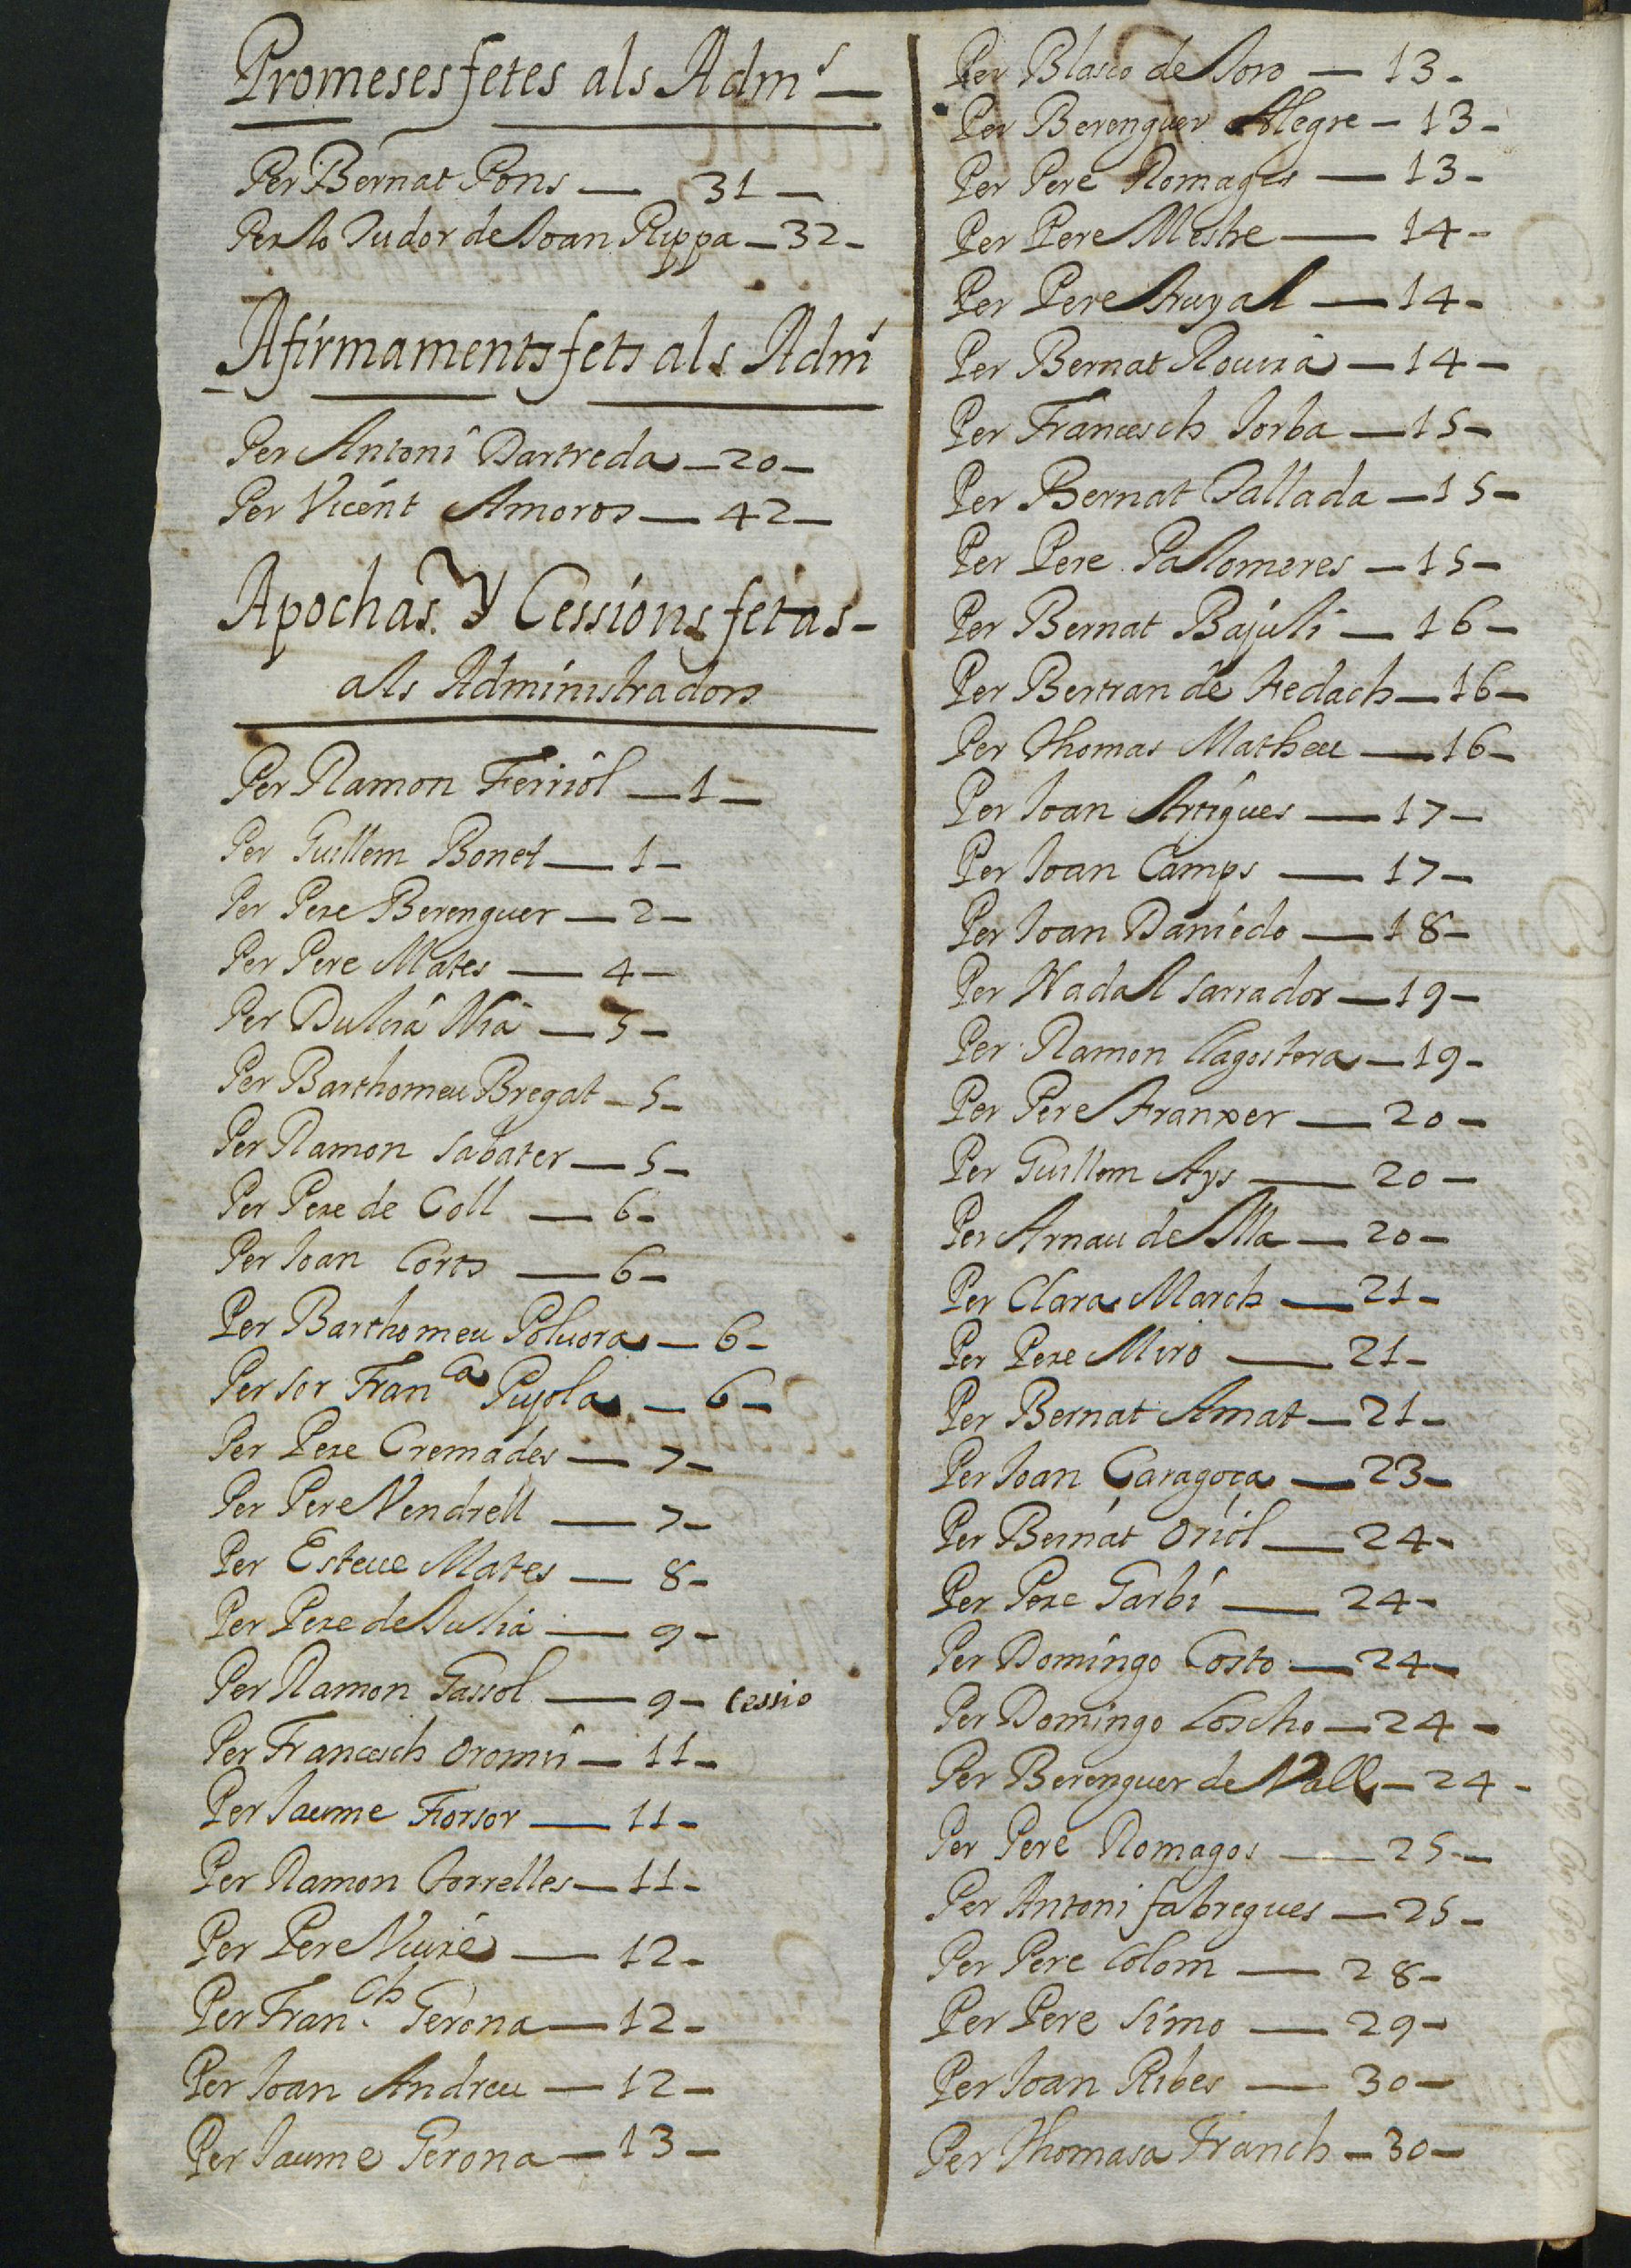 Promeses fetes als Adm.s —
Per Bernat Pons — 31 —
Per lo Tudor de Joan Rippa — 32 —
Afirmaments fets als Adm.s
Per Antoni Dartreda — 20 —
Per Vicent Amoros — 42 —
Apochas. Y Cessions fetas —
als Administradors
Per Ramon Ferriol — 1 —
Per Guillem Bonet — 1 —
Per Pere Berenguer — 2 —
Per Pere Mates — 4 —
Per Dulcia — 5 —
Per Barthomeu Bregat — 5 —
Per Ramon Sabater — 5 —
Per Pere de Coll — 6 —
Per Joan Corts — 6 —
Per Barthomeu Poluora — 6 —
Per sor Fran.ca Pujola — 6 —
Per Pere Cremades — 7 —
Per Pere Vendrell — 7 —
Per Esteue Mates — 8 —
Per Pere de Julia — 9 —
Per Ramon Gassol — 9 — cessio
Per Francesch Oromir — 11 —
Per Jaume Forsor — 11 —
Per Ramon Torrelles — 11 —
Per Pere Viure — 12 —
Per Fran.ch Gerona — 12 —
Per Joan Andreu — 12 —
Per Jaume Gerona — 13 —
Per Blasco de Soro — 13 —
Per Berenguer Alegre — 13 —
Per Pere Romages — 13 —
Per Pere Mestre — 14 —
Per Pere — 14 —
Per Bernat Rouira — 14 —
Per Francesch Jorba — 15 —
Per Bernat Tallada — 15 —
Per Pere Palomeres — 15 —
Per Bernat Bajuli — 16 —
Per Bertran de — 16 —
Per Thomas Matheu — 16 —
Per Joan Artigues — 17 —
Per Joan Camps — 17 —
Per Joan Daniedo — 18 —
Per Nadal sarrador — 19 —
Per Ramon Llagostera — 19 —
Per Pere Franxer — 20 —
Per Guillem Ays — 20 —
Per Arnau de Illa — 20 —
Per Clara March — 21 —
Per Pere Miro — 21 —
Per Bernat Amat — 21 —
Per Joan Çaragoça — 23 —
Per Bernat Oriol — 24 —
Per Pere Garbi — 24 —
Per Domingo Costo — 24 —
Per Domingo Loscho — 24 —
Per Berenguer de Vall — 24 —
Per Pere Romagos — 25 —
Per Antoni fabregues — 25 —
Per Pere Colom — 28 —
Per Pere Simo — 29 —
Per Joan Ribes — 30 —
Per Thomasa Franch — 30 —